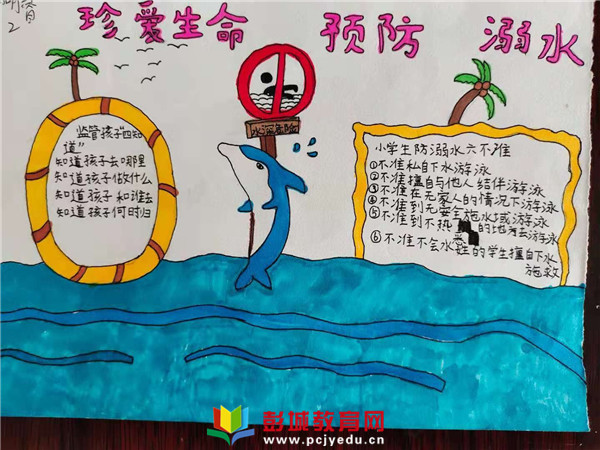 珍爱生命 预防 溺水
2
水深危险
监管孩子"四知
道"
知道孩子去哪里
知道孩子做什么
知道孩子和谁去
知道孩子何时归
小学生防溺水六不准
①不准私自下水游泳
②不准擅自与他人结伴游泳
③不准在无家人的情况下游泳
④不准到无安全施水域游泳
⑤不准到不热 的地方去游泳
⑥不准不会水性的学生擅自下水
施救
彭城教育网
www.pcjyedu.cn